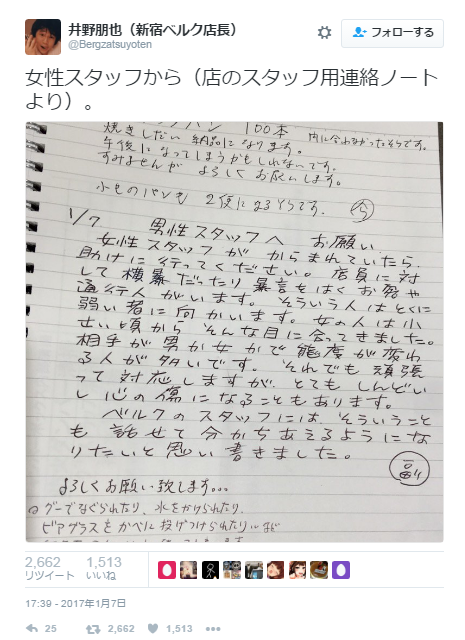 井野朋也（新宿ベルク店長）
@Bergzatsuyoten
フォローする
女性スタッフから（店のスタッフ用連絡ノート
より）。
100本
焼きしだい 納品になります。
午後になってしまうかもしれないです。
すみませんが よろしくお願いします。
小もの パンも 2便になるそうです。
1/7 男性スタッフへ お願い
女性スタッフが からまれていたら
助けに行ってください。店員に対
して横暴だったり暴言をはくお客や
通行人がいます。そういう人はとくに
弱い者に向かいます。女の人は小
さい頃から そんな目に会ってきました。
相手が男か女かで態度が変わ
る人が多いです。それでも頑張
って対応しますが、とてもしんどい
し心の傷になることもあります。
ベルクのスタッフには そういうこと
も 話せて分かちあえるようにな
りたいと思い書きました。
副
よろしくお願い致します…
○グーでなぐられたり、水をかけられたり、
ビアグラスをかべに投げつけられたり
2,662 1,513
リツイート いいね
17:39 - 2017年1月7日
25 2,662 1,513